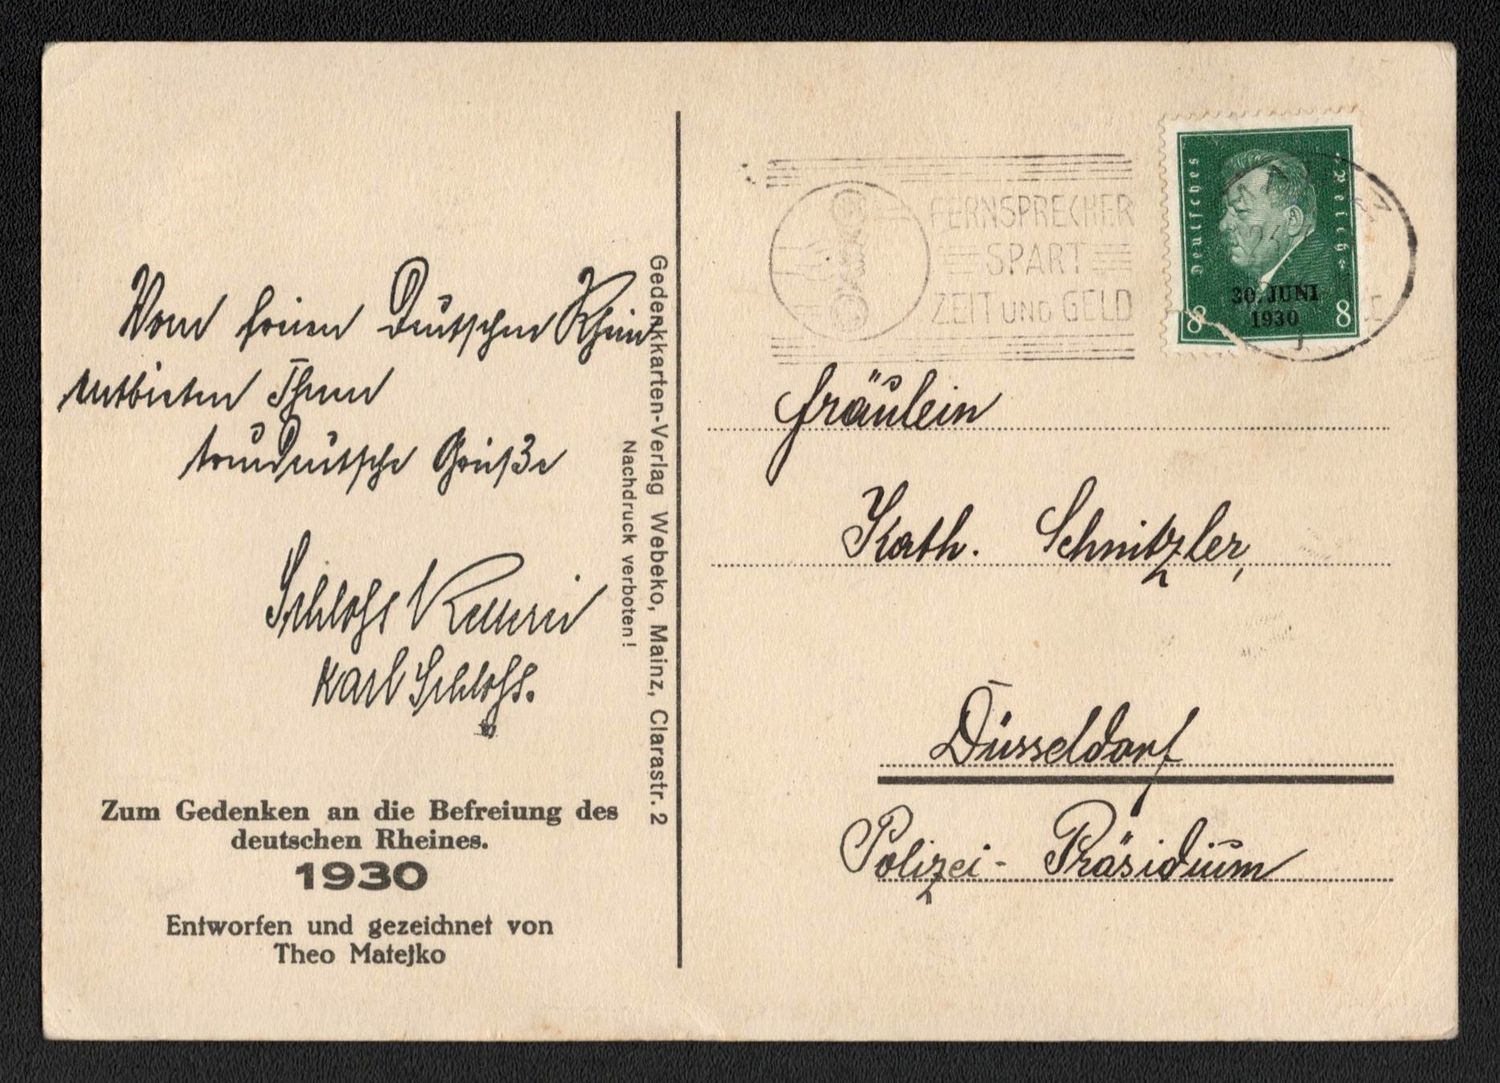 Vom freien Deutschen Rhein
entbieten Ihnen
treudeutsche Grüße
Schloss
Karl Schloss.
Zum Gedenken an die Befreiung des
deutschen Rheines.
1930
Entworfen und gezeichnet von
Theo Matejko
Gedenkkarten-Verlag Webeko, Mainz, Clarastr. 2
Nachdruck verboten!
FERNSPRECHER
SPART
ZEIT UND GELD
Deutsches Reich
30. JUNI
1930
8 8
Fräulein
Kath. Schnitzler,
Düsseldorf
Polizei-Präsidium